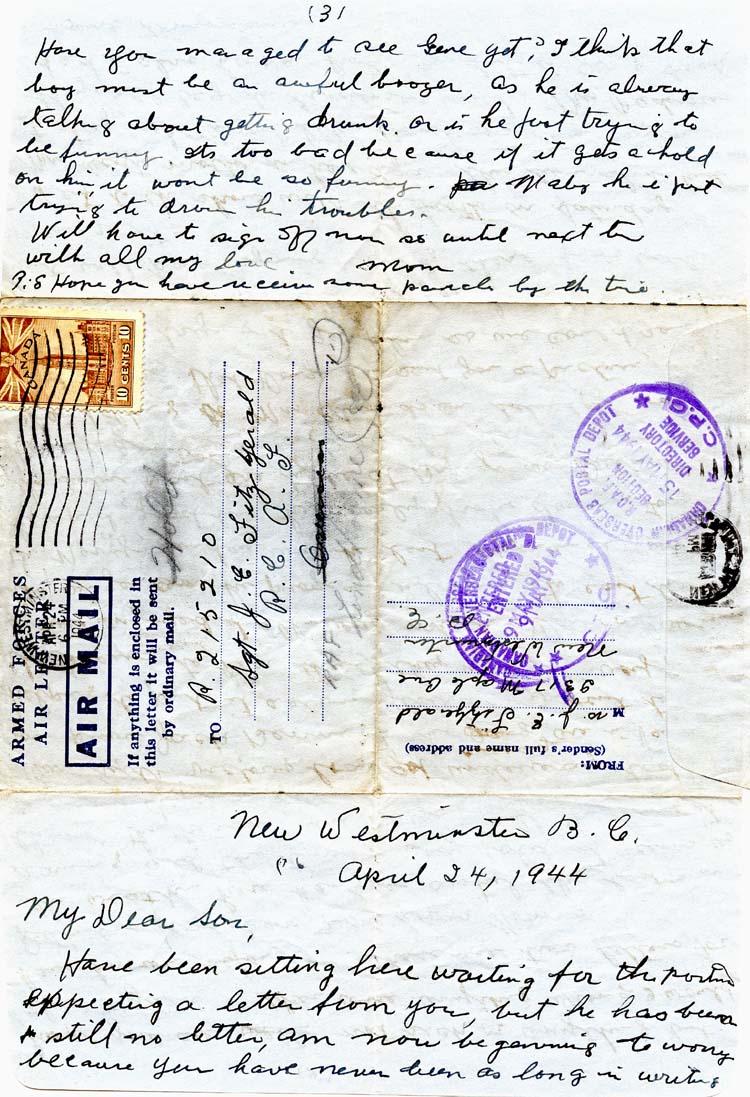 (3)
Have you managed to see Gene yet? I think that
boy must be an awful boozer, as he is already
talking about getting drunk. or is he just trying to
be funny. its too bad because if it gets a hold
on him it wont be so funny. Maby he i just
trying to drown his troubles.
Will have to sign off now so until next
with all my love Mom
P.S Hope you have receive some parcels by this
CANADA
10 CENTS 10
ARMED FORCES
AIR LETTER
AIR MAIL
If anything is enclosed in
this letter it will be sent
by ordinary mail.
Hold
TO
R.215210
Sgt. J. E. Fitzgerald
R. C. A. F.
FROM:
(Sender's full name and address)
Mrs J. E. Fitzgerald
Maple Ave
New Westminster
B. C.
CANADIAN OVERSEAS POSTAL DEPOT
R.C.A.F.
SECTION
15 MAY 1944
DIRECTORY
SERVICE
C.P.O.
New Westminster B. C.
April 24, 1944
My Dear Son,
Have been sitting here waiting for the
expecting a letter from you, but he has been
+ still no letter, am now beganning to worry
because you have never been as long in writing